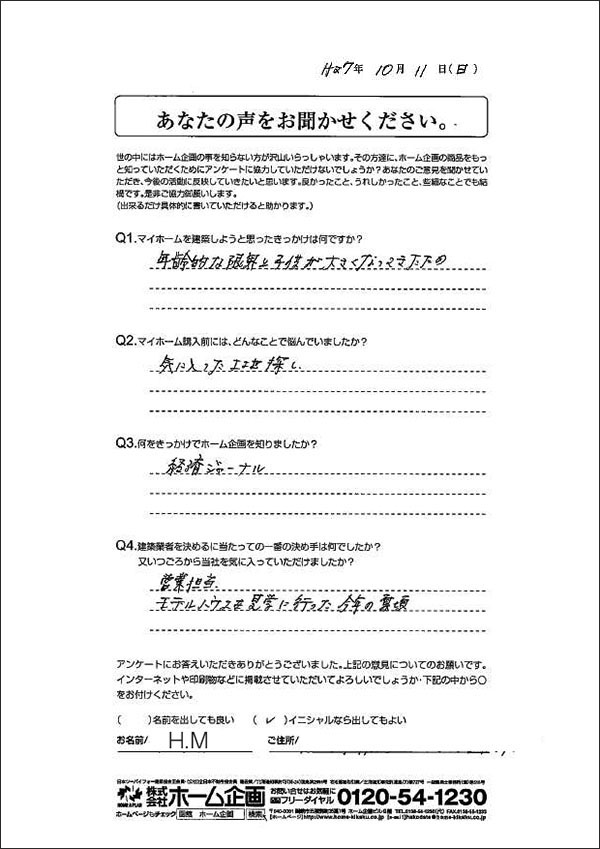 H27年 10月 11日(日)
あなたの声をお聞かせください。
世の中にはホーム企画の事を知らない方が沢山いらっしゃいます。その方達に、ホーム企画の商品をもっ
と知っていただくためにアンケートに協力していただけないでしょうか?あなたのご意見を聞かせていた
だき、今後の活動に反映していきたいと思います。良かったこと、うれしかったこと、些細なことでも結
構です。是非ご協力御願いします。
(出来るだけ具体的に書いていただけると助かります。)
Q1.マイホームを建築しようと思ったきっかけは何ですか?
年齢的な限界と子供が大きくなってきたため
Q2.マイホーム購入前には、どんなことで悩んでいましたか?
気に入った土地探し
Q3.何をきっかけでホーム企画を知りましたか?
経済ジャーナル
Q4.建築業者を決めるに当たっての一番の決め手は何でしたか?
又いつごろから当社を気に入っていただけましたか?
営業担当
モデルハウスを見学に行った今年の夏頃
アンケートにお答えいただきありがとうございました。上記の意見についてのお願いです。
インターネットや印刷物などに掲載させていただいてよろしいでしょうか・下記の中から○
をお付けください。
( )名前を出しても良い (✓)イニシャルなら出してもよい
お名前/ H.M ご住所/
HOME & PLAN 株式会社 ホーム企画 お問い合せはお気軽に フリーダイヤル 0120-54-1230
ホームページもチェック 函館 ホーム企画 検索